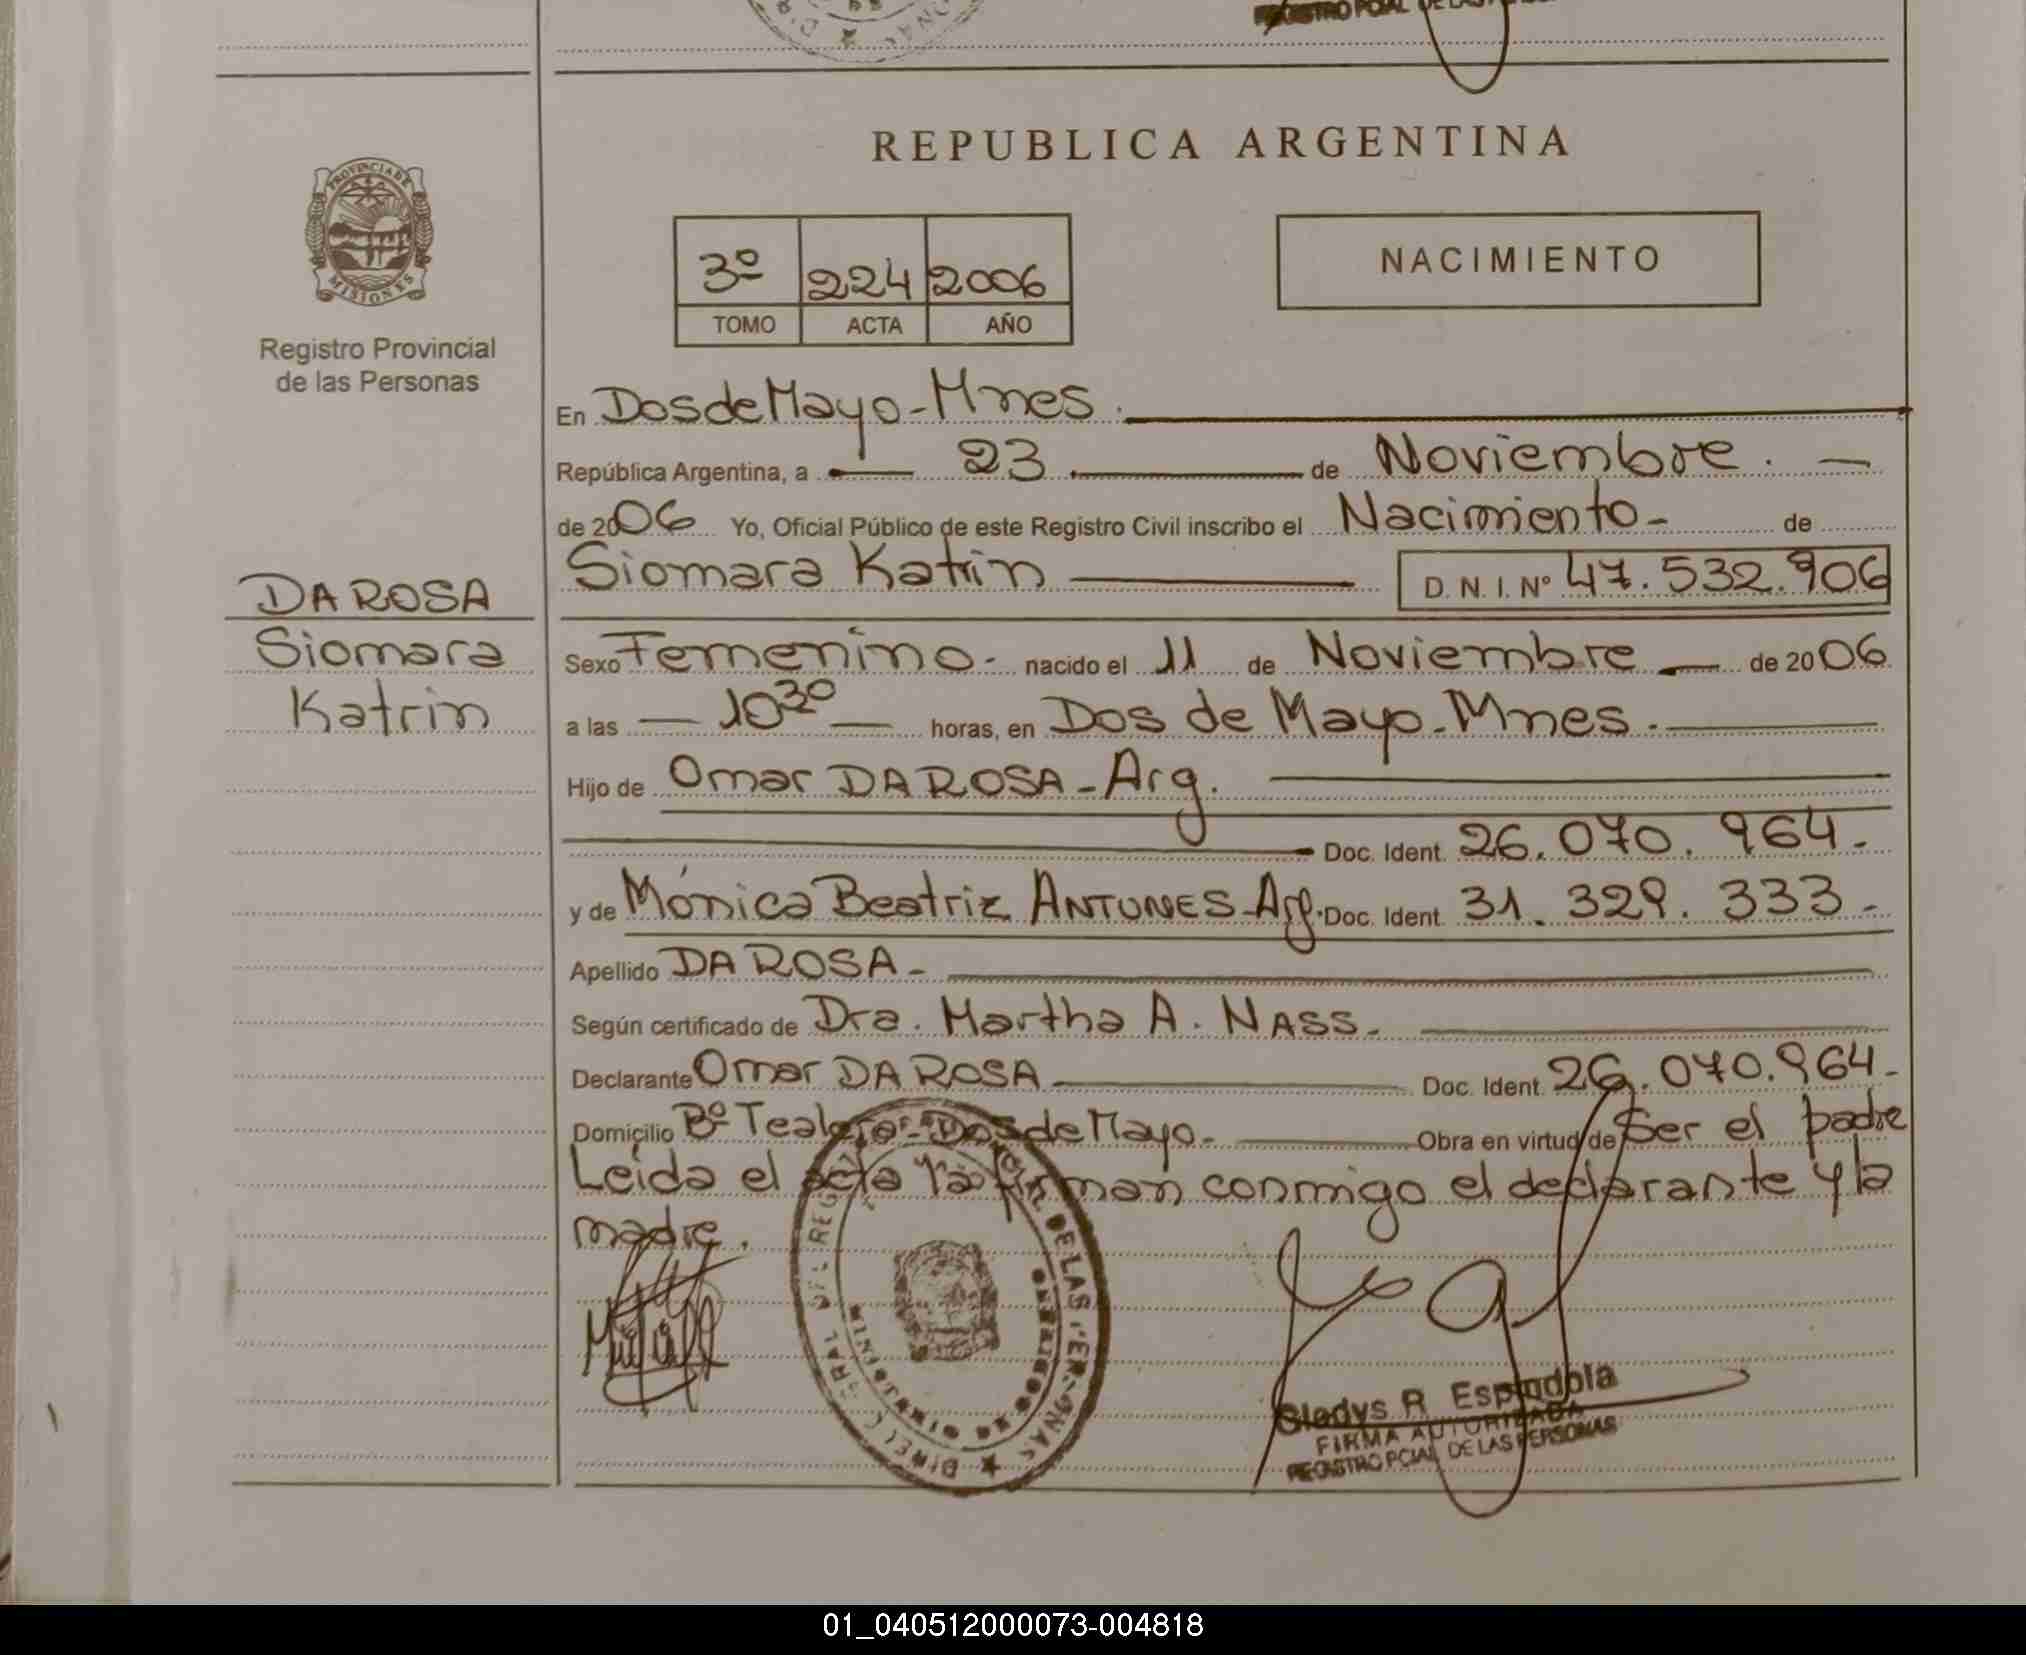 REPUBLICA ARGENTINA
PROVINCIA DE
MISIONES
Registro Provincial
de las Personas
3º 224 2006
TOMO ACTA AÑO
NACIMIENTO
En Dos de Mayo - Mnes.
República Argentina, a 23 de Noviembre.
de 2006 Yo, Oficial Público de este Registro Civil inscribo el Nacimiento - de
Siomara Katrin D. N. I. Nº 47.532.906
DA ROSA
Siomara
Katrin
Sexo Femenino - nacido el 11 de Noviembre de 2006
a las 10 30 horas, en Dos de Mayo - Mnes.
Hijo de Omar DA ROSA - Arg.
Doc. Ident. 26.070.964 -
y de Mónica Beatriz ANTUNES - Arg. Doc. Ident. 31.329.333 -
Apellido DA ROSA -
Según certificado de Dra. Martha A. NASS -
Declarante Omar DA ROSA Doc. Ident. 26.070.964 -
Domicilio Bº Dos de Mayo - Obra en virtud de Ser el padre
Leída el acta firman conmigo el declarante y la
madre.
Gladys R Espindola
FIRMA AUTORIZADA
REGISTRO PCIAL DE LAS PERSONAS
01_040512000073-004818